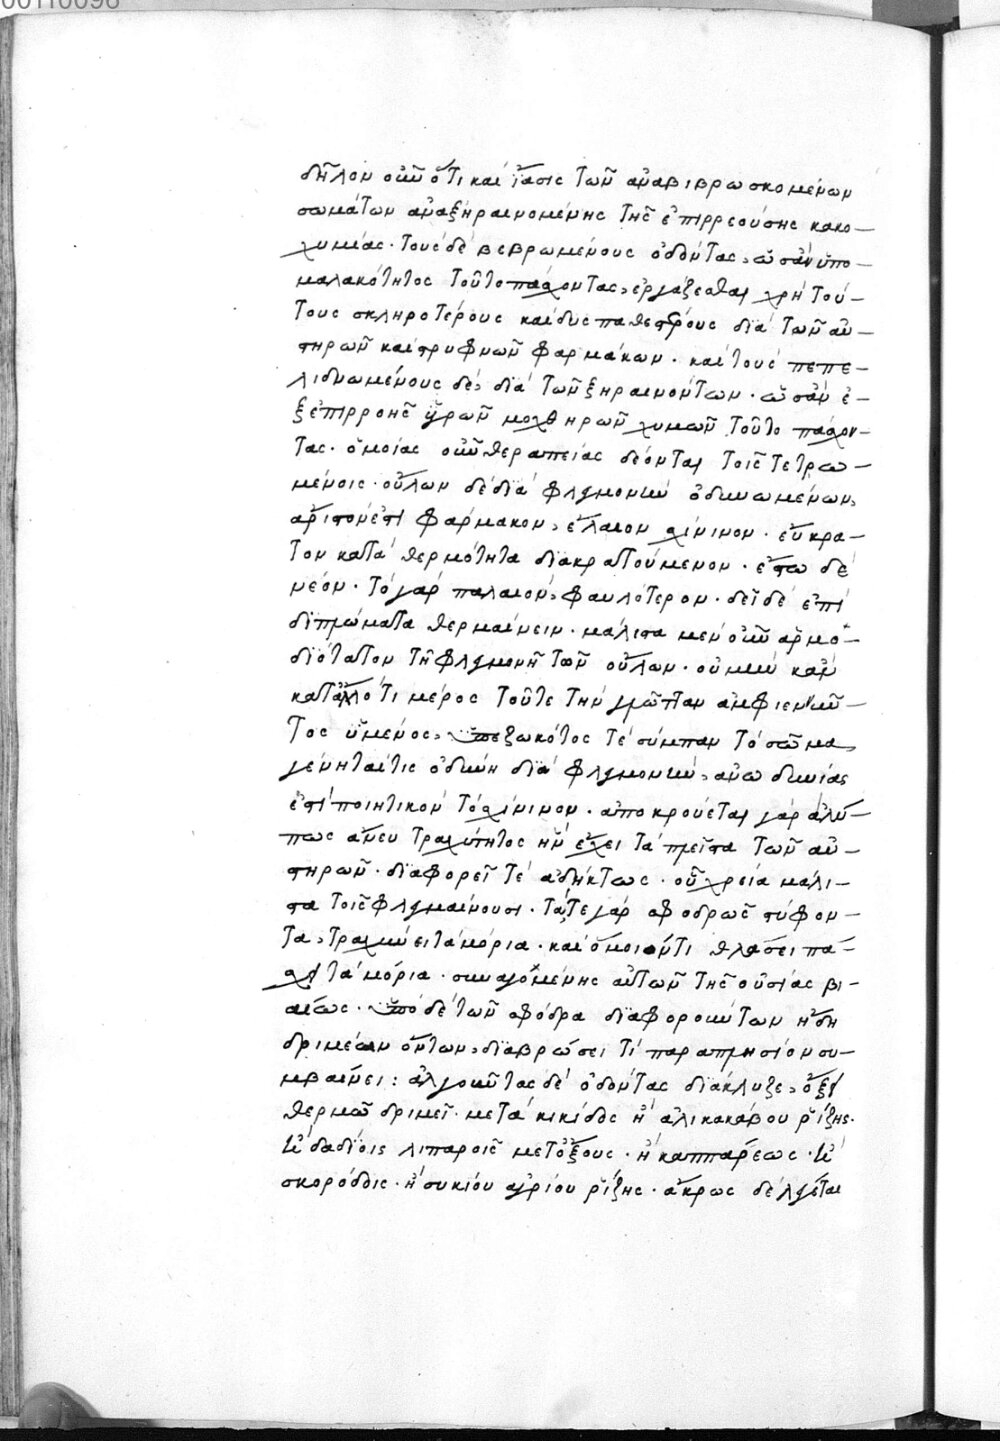 00110096
δῆλον οὖν ὅτι καὶ ἴασις τῶν ἀναβιβρωσκομένων
σωμάτων ἀναξηραινομένης τῆς ἐπιρρεούσης κακο-
χυμίας. τοὺς δὲ βεβρωμένους ὀδόντας, ὡσὰν ὑπο-
μαλακότητος τοῦτο πάσχοντας, ἐργάζεσθαι χρὴ τού-
τους σκληροτέρους καὶ δυσπαθεστέρους διὰ τῶν αὐ-
στηρῶν καὶ στρυφνῶν φαρμάκων. καὶ τοὺς πεπε-
λιδνωμένους δὲ, διὰ τῶν ξηραινόντων. ὡσὰν ἐ-
ξ ἐπιρροῆς ὑγρῶν μοχθηρῶν χυμῶν τοῦτο πάσχον-
τας. ὁμοίας οὖν θεραπείας δέονται τοῖς τετρω-
μένοις. οὔλων δὲ διὰ φλεγμονὴν ὀδυνωμένων,
ἄριστον ἐστὶ φάρμακον, ἔλαιον χίνινον. εὔκρα-
τον κατὰ θερμότητα διακρατούμενον. ἔστω δὲ
νέον. τὸ γὰρ παλαιὸν, φαυλότερον. δεῖ δὲ ἐπὶ
διπλώματα θερμαίνειν. μάλιστα μὲν οὖν ἁρμο-
διότατον τῇ φλεγμονῇ τῶν οὔλων. οὐ μὴν κἂν
κατ' ἄλλό τι μέρος τοῦτε τὴν γλῶτταν ἀμφιεννῦν-
τος ὑμένος, ὑπεζωκότος τὲ σύμπαν τὸ σῶμα,
γένηταί τις ὀδύνη διὰ φλεγμονὴν, ἀνωδυνίας
ἐστὶ ποιητικὸν τὸ χίνινον. ἀποκρούεται γὰρ ἀλύ-
πως ἄνευ τραχύτητος ἣν ἔχει τὰ πλεῖστα τῶν αὐ-
στηρῶν. διαφορεῖ τὲ ἀδήκτως. οὗ χρεία μάλι-
στα τοῖς φλεγμαίνουσι. τά,τε γὰρ σφοδρῶς στύφον-
τα, τραχύνει τὰ μόρια. καὶ ὅμοιόν τι θλάσει πά-
σχει τὰ μόρια. συναγομένης αὐτῶν τῆς οὐσίας βι-
αίως. ὑπὸ δὲ τῶν σφόδρα διαφορούντων ἤδη
δριμέων ὄντων, διαβρώσει τί παραπλήσιον συ-
μβαίνει: ἀλγοῦντας δὲ ὀδόντας διάκλυζε, ὄξει
θερμῷ δριμεῖ. μετὰ κικίδος ἢ ἁλικακάβου ῥίζης.
ἢ δᾳδίοις λιπαροῖς μετ' ὄξους. ἢ καππάρεως. ἢ
σκορόδοις. ἢ συκίου ἀγρίου ῥίζης. ἄκρως δὲ λέγεται